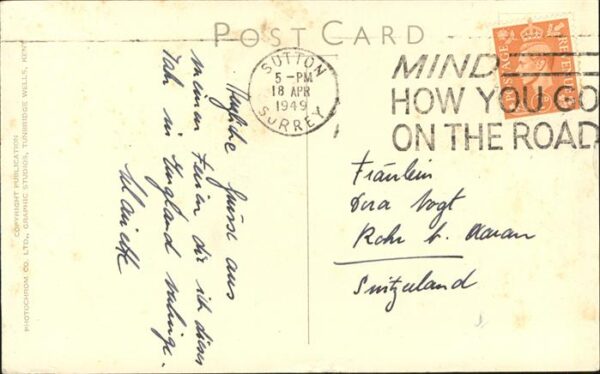 POST CARD
SUTTON
5 - PM
18 APR
1949
SURREY
MIND
HOW YOU GO
ON THE ROAD
POSTAGE REVENUE
Herzliche Grüsse aus
meinen Ferien die ich dieses
Jahr in England verbringe.
Fräulein
Vogt
Rohr b. Aarau
Switzerland
COPYRIGHT PUBLICATION
PHOTOCHROM CO. LTD., GRAPHIC STUDIOS, TUNBRIDGE WELLS, KENT